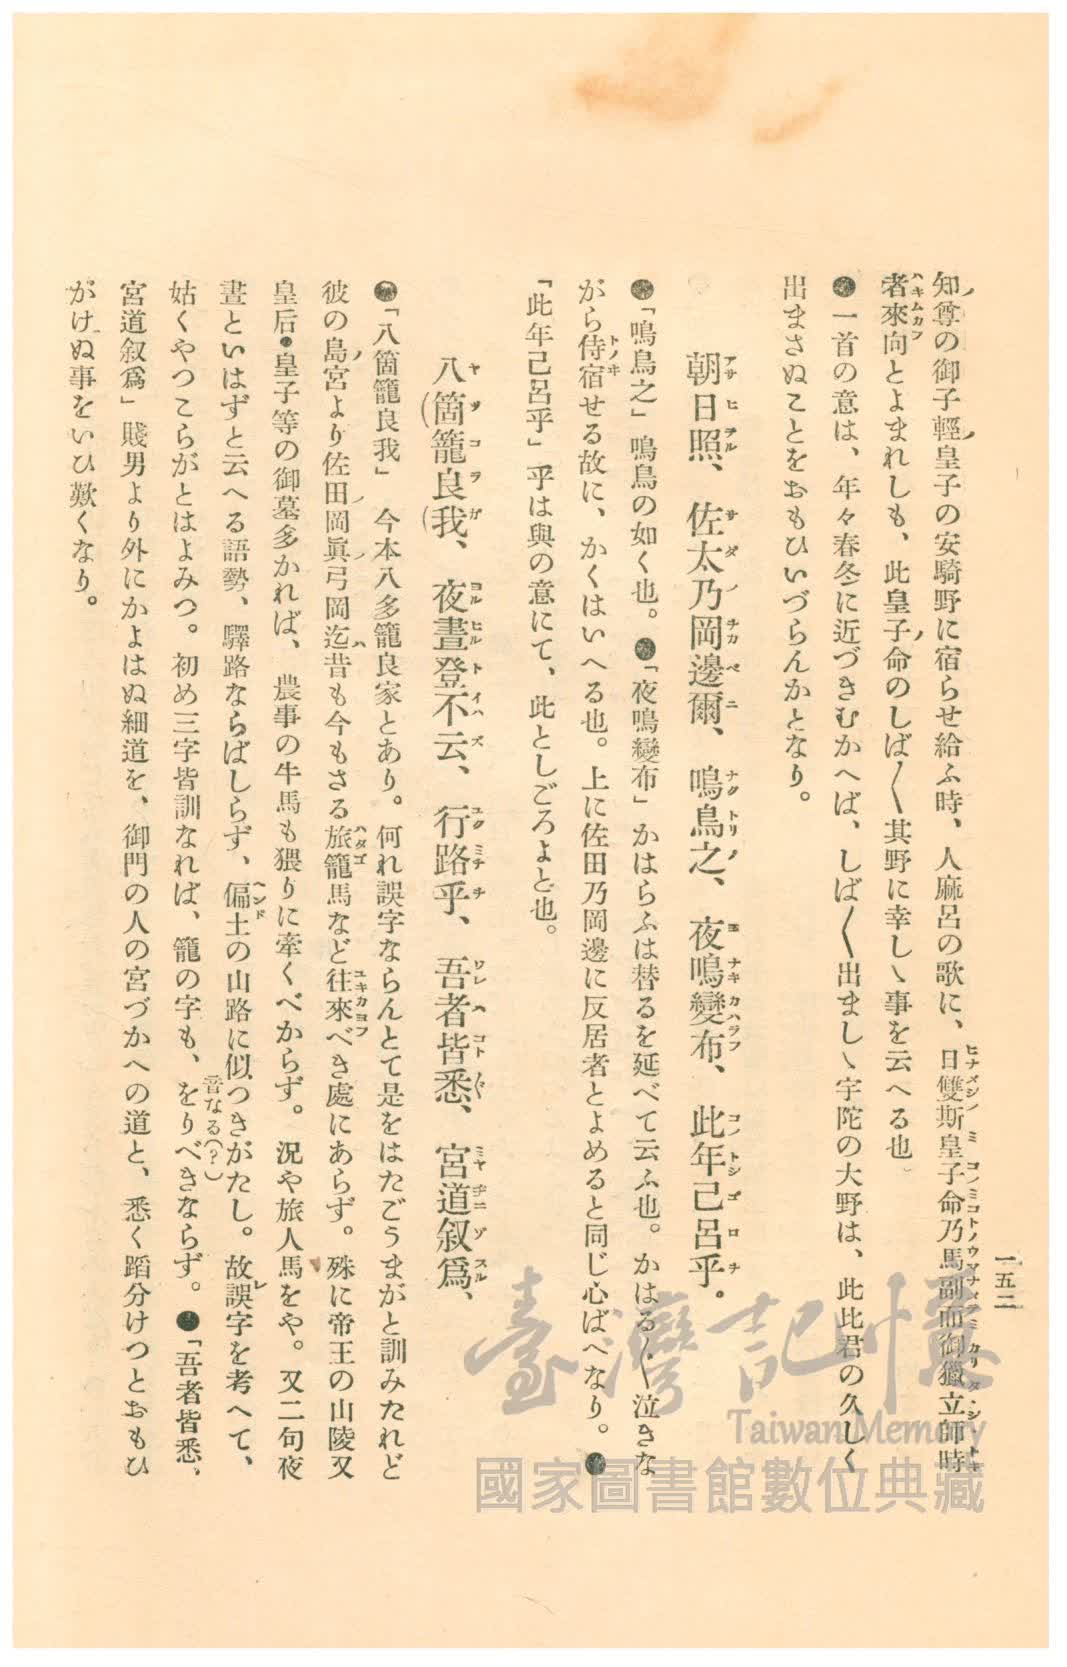 一五二
知尊の御子輕皇子の安騎野に宿らせ給ふ時、人麻呂の歌に、日雙斯皇子命乃馬副而御獵立師時
者來向とよまれしも、此皇子命のしば〱其野に幸しゝ事を云へる也
●一首の意は、年々春冬に近づきむかへば、しば〱出ましゝ宇陀の大野は、此比君の久しく
出まさぬことをおもひいづらんかとなり。
朝日照、佐太乃岡邊爾、鳴鳥之、夜鳴變布、此年己呂乎。
●「鳴鳥之」鳴鳥の如く也。●「夜鳴變布」かはらふは替るを延べて云ふ也。かはる〲泣きな
がら侍宿せる故に、かくはいへる也。上に佐田乃岡邊に反居者とよめると同じ心ばへなり。●
「此年己呂乎」乎は與の意にて、此としごろよと也。
八箇籠良我、夜晝登不云、行路乎、吾者皆悉、宮道叙爲、
●「八箇籠良我」今本八多籠良家とあり。何れ誤字ならんとて是をはたごうまがと訓みたれど
彼の島宮より佐田岡眞弓岡迄昔も今もさる旅籠馬など往來べき處にあらず。殊に帝王の山陵又
皇后・皇子等の御墓多かれば、農事の牛馬も猥りに牽くべからず。況や旅人馬をや。又二句夜
晝といはずと云へる語勢、驛路ならばしらず、偏土の山路に似つきがたし。故誤字を考へて、
姑くやつこらがとはよみつ。初め三字皆訓なれば、籠の字も、音なる(?)をりべきならず。●「吾者皆悉、
宮道叙爲」賤男より外にかよはぬ細道を、御門の人の宮づかへの道と、悉く蹈分けつとおもひ
がけぬ事をいひ歎くなり。
臺灣記憶
Taiwan Memory
國家圖書館數位典藏